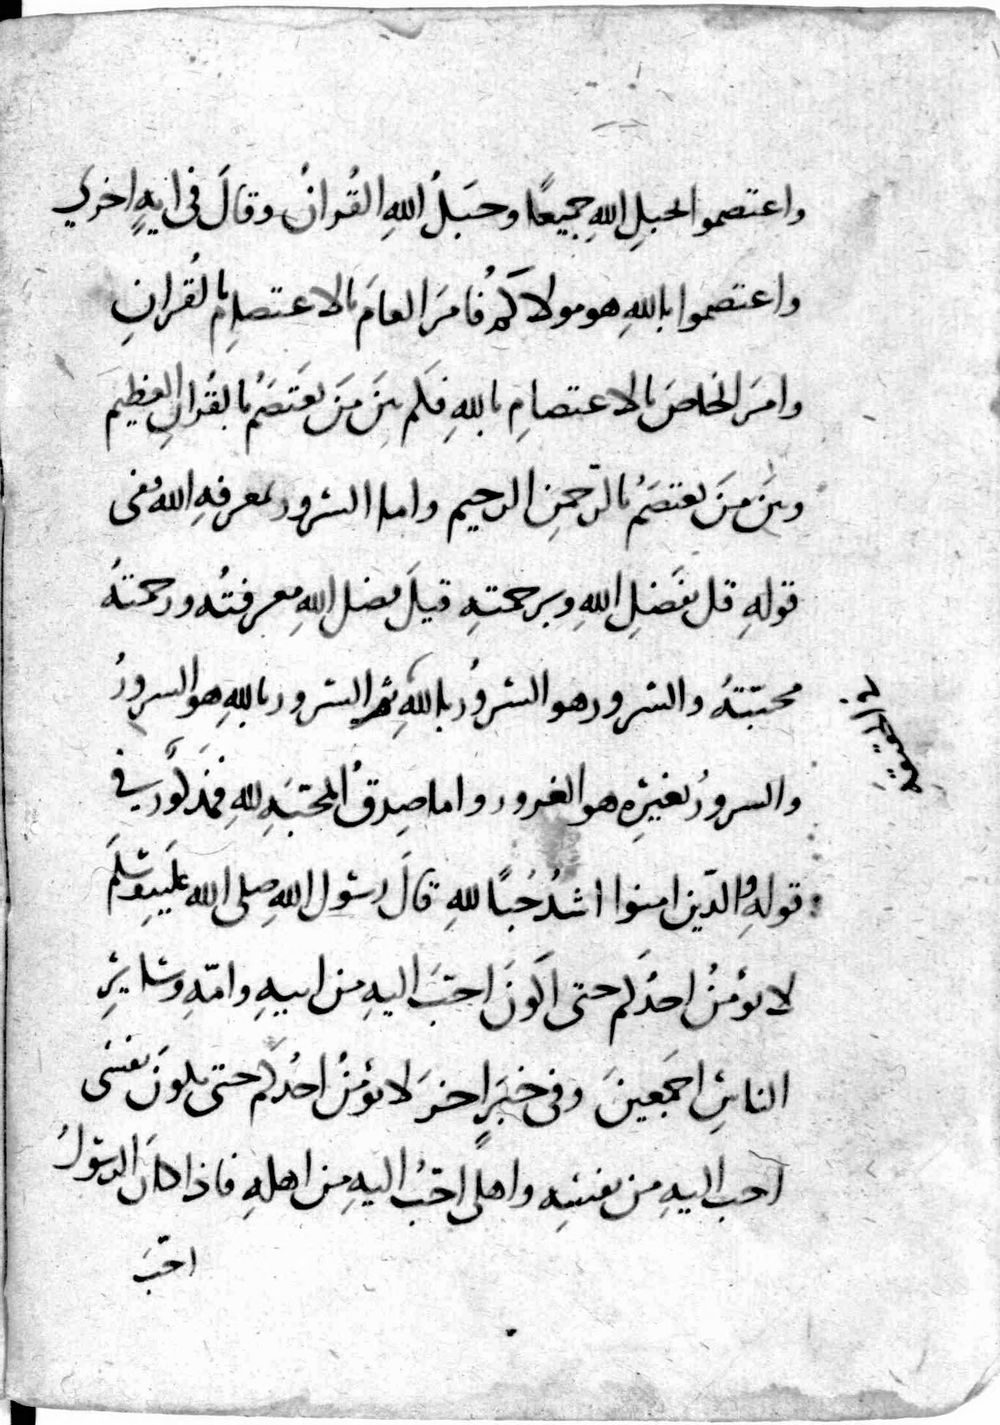 واعتصموا بحبلِ اللهِ جميعًا وحبَلُ اللهِ القُرانُ وقالَ فى ايهٍ اخرى
واعتصموا باللهِ هو مولاكم فامَرَ العامَ بالاعتصامِ بالقُرانِ
وامرَ الخاصَ بالاعتصامِ باللهِ فلَم بينَ مَنَ يعتَصمُ بالقُرانِ العظيم
وبينَ منَ يعتصمُ بالرّحمنِ الرحيم واما السرور بمعرفهِ الله ففى
قولهِ قل بفَضلِ اللهِ وبرحمتهِ قيلَ فضل اللهِ معرفتُه ورحمتهُ
محبّتهُ والسرور هو السرورُ باللهِ ثم السرور باللهِ هو السرورُ
والسرورُ بغيرِه هو الغرور واما صِدقُ المحبّهِ للهِ فمذكورُ في
قولهِ والذّين امنوا اشدُ حُبًا للهِ قالَ رسُول اللهِ صلى الله عليهِ وسَلمَ
لا يؤمنُ احدُكم حتى اكونَ احبَّ اليهِ من ابيهِ وامّهِ وسايِرِ
الناسِ اجمَعينَ وفى خبَرٍ اخرَ لا يؤمنُ احدُكم حتى يكونَ نفسى
احب اليهِ من نفسِه واهلى احبُ اليهِ من اهلهِ فاذا كانَ الرسولُ
احَبَّ